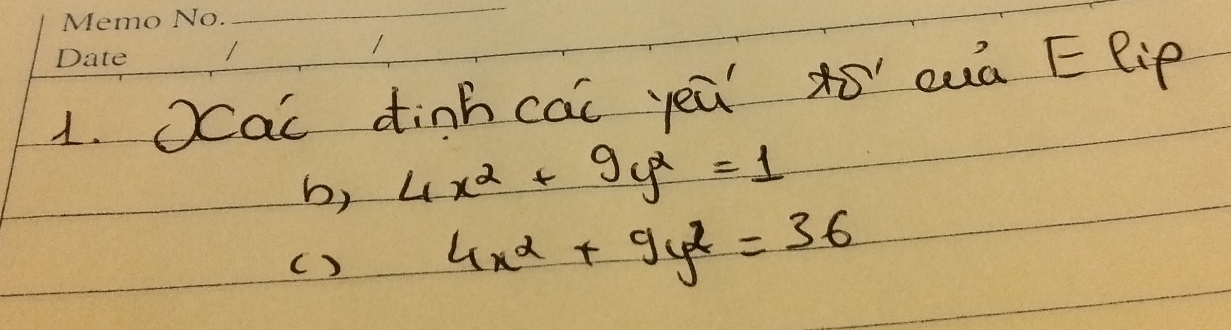 Memo No.
Date / /
1. Xác định các yếu tố của Elip
b, 4x² + 9y² = 1
c) 4x² + 9y² = 36